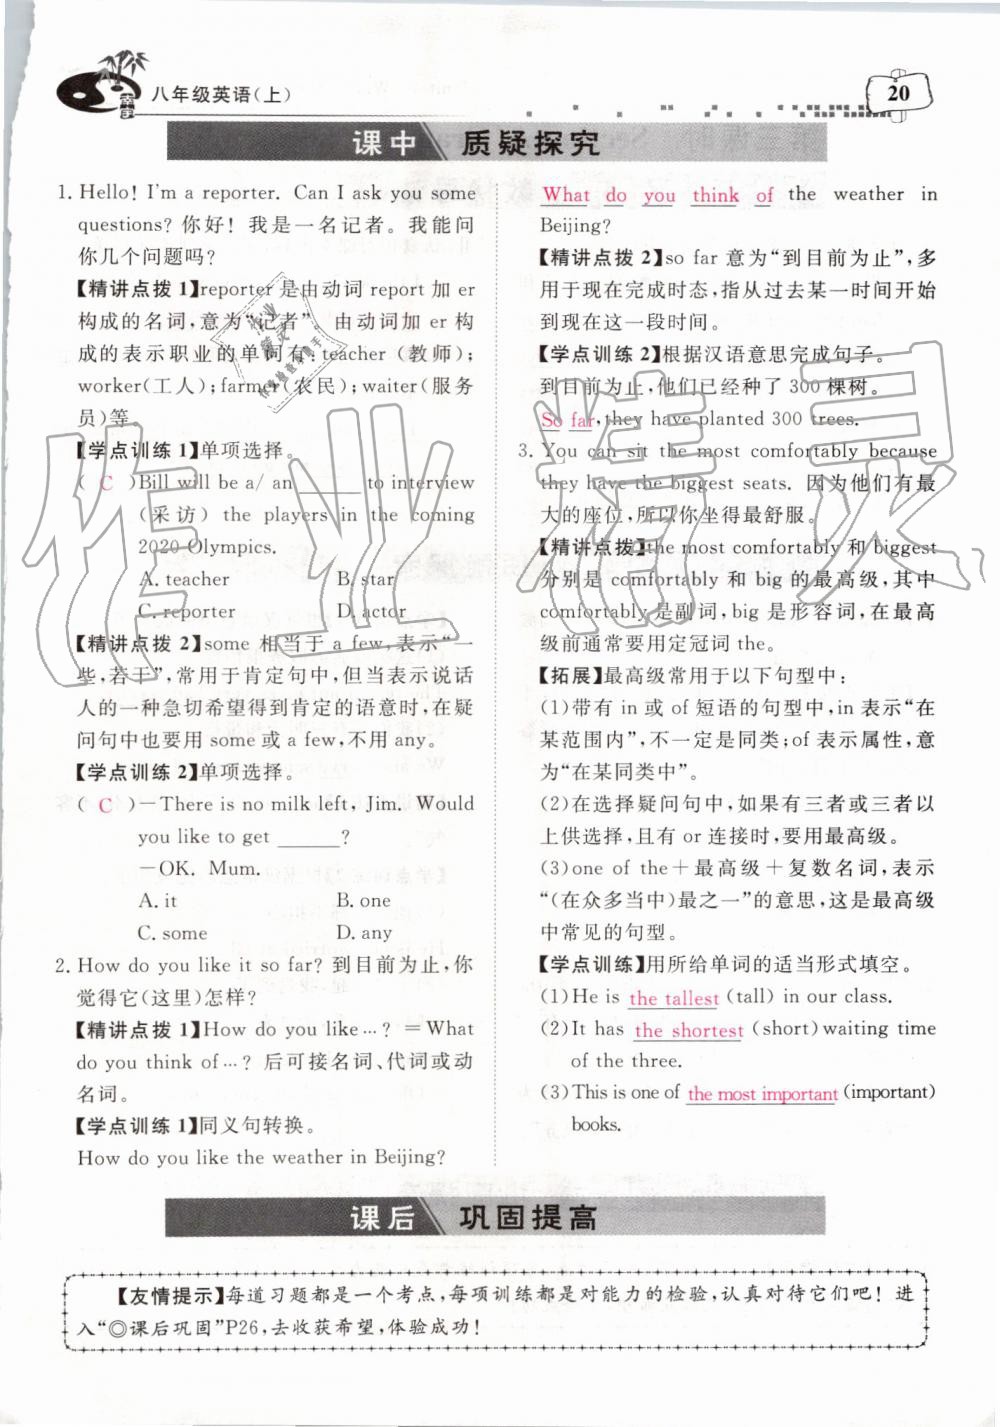 八年级英语(上)
20
课中 质疑探究
1. Hello! I'm a reporter. Can I ask you some
questions? 你好! 我是一名记者。我能问
你几个问题吗?
【精讲点拨 1】reporter 是由动词 report 加 er
构成的名词,意为“记者”。由动词加 er 构
成的表示职业的单词有: teacher (教师);
worker(工人); farmer(农民); waiter(服务
员)等。
【学点训练 1】单项选择。
( C )Bill will be a/ an ______ to interview
(采访) the players in the coming
2020 Olympics.
A. teacher B. star
C. reporter D. actor
【精讲点拨 2】some 相当于 a few,表示“一
些,若干”,常用于肯定句中,但当表示说话
人的一种急切希望得到肯定的语意时,在疑
问句中也要用 some或 a few,不用 any。
【学点训练 2】单项选择。
( C )—There is no milk left, Jim. Would
you like to get ______?
—OK, Mum.
A. it B. one
C. some D. any
2. How do you like it so far? 到目前为止,你
觉得它(这里)怎样?
【精讲点拨 1】How do you like…? =What
do you think of…? 后可接名词、代词或动
名词。
【学点训练 1】同义句转换。
How do you like the weather in Beijing?
What do you think of the weather in
Beijing?
【精讲点拨 2】so far 意为“到目前为止”,多
用于现在完成时态,指从过去某一时间开始
到现在这一段时间。
【学点训练 2】根据汉语意思完成句子。
到目前为止,他们已经种了 300 棵树。
So far, they have planted 300 trees.
3. You can sit the most comfortably because
they have the biggest seats. 因为他们有最
大的座位,所以你坐得最舒服。
【精讲点拨】the most comfortably 和 biggest
分别是 comfortably 和 big 的最高级,其中
comfortably 是副词,big 是形容词,在最高
级前通常要用定冠词 the。
【拓展】最高级常用于以下句型中:
(1)带有 in 或 of 短语的句型中,in 表示“在
某范围内”,不一定是同类;of 表示属性,意
为“在某同类中”。
(2)在选择疑问句中,如果有三者或三者以
上供选择,且有 or 连接时,要用最高级。
(3)one of the+最高级+复数名词,表示
“(在众多当中)最之一”的意思,这是最高级
中常见的句型。
【学点训练】用所给单词的适当形式填空。
(1)He is the tallest (tall) in our class.
(2)It has the shortest (short)waiting time
of the three.
(3)This is one of the most important (important)
books.
课后 巩固提高
【友情提示】每道习题都是一个考点,每项训练都是对能力的检验,认真对待它们吧! 进
入“◎课后巩固”P26,去收获希望,体验成功!
作业精灵